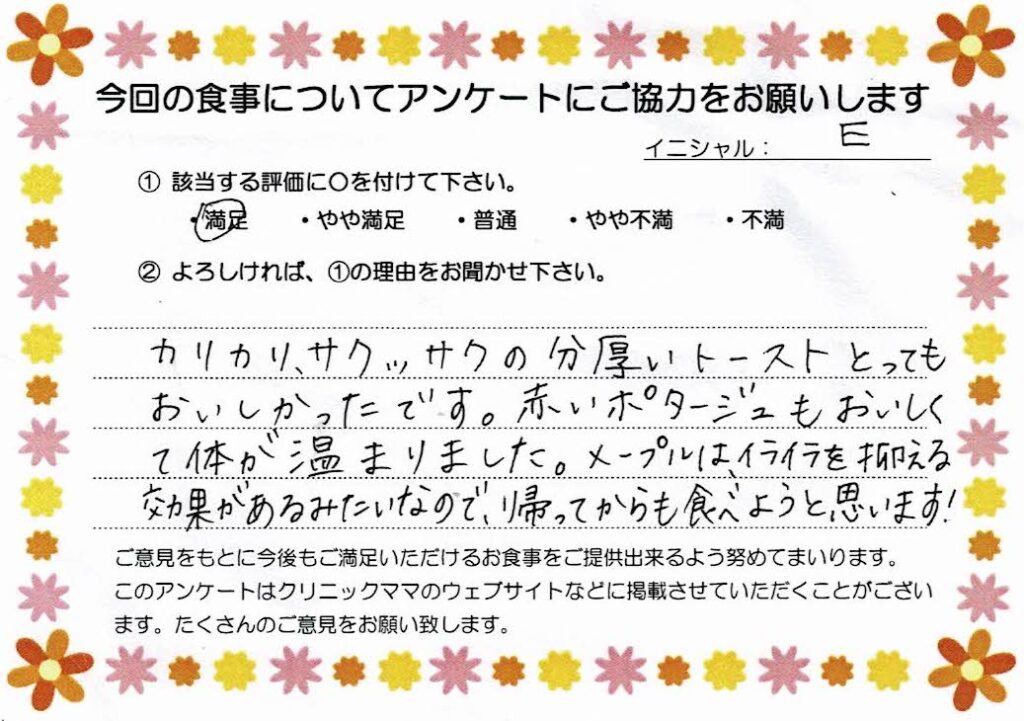 今回の食事についてアンケートにご協力をお願いします
イニシャル： E
① 該当する評価に〇を付けて下さい。
・満足 ・やや満足 ・普通 ・やや不満 ・不満
② よろしければ、①の理由をお聞かせ下さい。
カリカリ、サクッサクの分厚いトーストとっても
おいしかったです。赤いポタージュもおいしく
て体が温まりました。メープルは、イライラを抑える
効果があるみたいなので、帰ってからも食べようと思います!
ご意見をもとに今後もご満足いただけるお食事をご提供出来るよう努めてまいります。
このアンケートはクリニックママのウェブサイトなどに掲載させていただくことがござい
ます。たくさんのご意見をお願い致します。